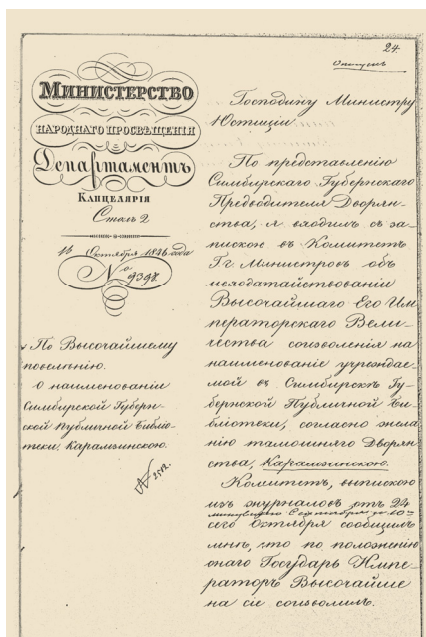 24.
Отпускъ
МИНИСТЕРСТВО
НАРОДНАГО ПРОСВѢЩЕНІЯ
Департаментъ
КАНЦЕЛЯРІЯ
Столъ 2
14 Октября 1846 года
№ 9398.
По Высочайшему
повелѣнію.
О наименованіи
Симбирской Губерн-
ской Публичной Библіо-
теки Карамзинскою.
Господину Министру
Юстиціи
По представленію
Симбирскаго Губернскаго
Предводителя Дворян-
ства, я входилъ съ за-
пискою въ Комитетъ
Гг. Министровъ объ
исходатайствованіи
Высочайшаго Его Им-
ператорскаго Вели-
чества соизволенія на
наименованіе учреждае-
мой въ Симбирскѣ Гу-
бернской Публичной Би-
бліотеки, согласно жела
нію тамошняго Дворян
ства, Карамзинскою.
Комитетъ, выпискою
изъ журналовъ отъ 24
минувшаго Сентября и 10
сего Октября сообщилъ
мнѣ, что по положенію
онаго Государь Импе-
раторъ Высочайше
на сіе соизволилъ.